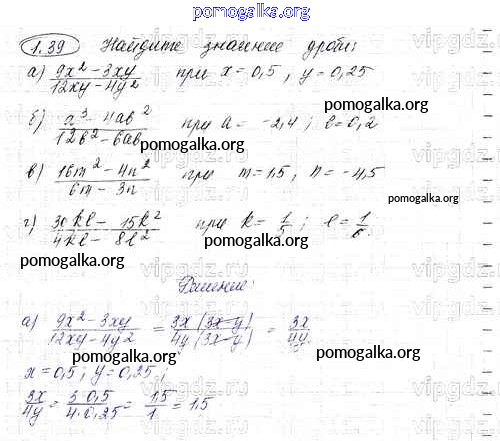 pomogalka.org
1.39 Найдите значение дроби:
а) 9x² - 3xy / 12xy - 4y² при x = 0,5, y = 0,25
б) a³ - 4ab² / 12b² - 6ab при a = -2,4; b = 0,2
pomogalka.org
в) 16m² - 4n² / 6m - 3n при m = 1,5, n = -4,5
pomogalka.org
г) 30kl - 15k² / 4kl - 8l² при k = 1/5; l = 1/6.
pomogalka.org
pomogalka.org
Решение:
pomogalka.org
а) 9x² - 3xy / 12xy - 4y² = 3x (3x-y) / 4y (3x-y) = 3x / 4y
pomogalka.org
x = 0,5; y = 0,25;
3x / 4y = 3·0,5 / 4·0,25 = 1,5 / 1 = 1,5
pomogalka.org